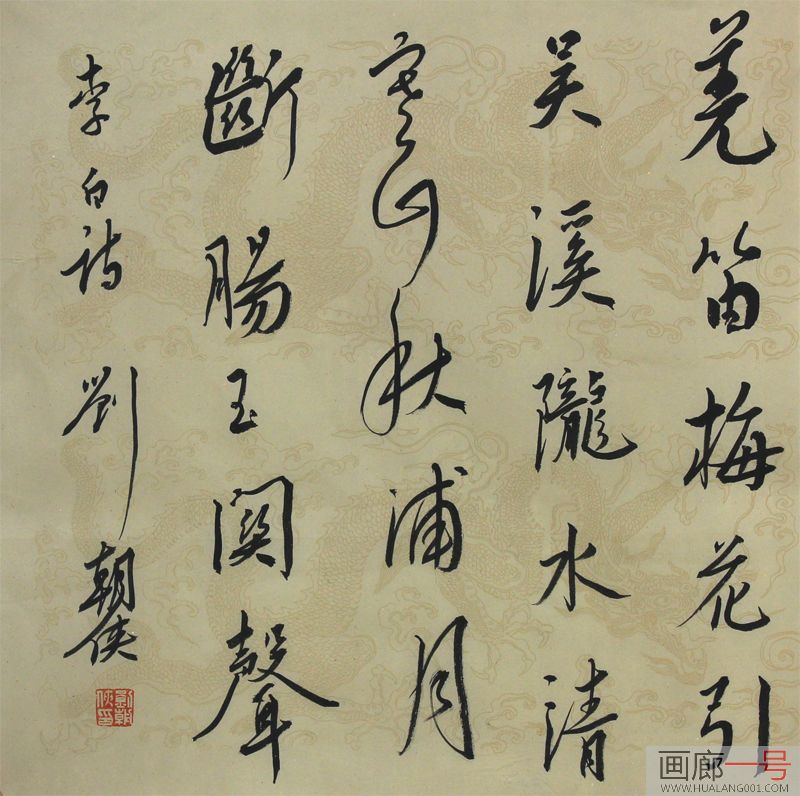 羌笛梅花引
吴溪隴水清
寒山秋浦月
斷腸玉関聲
李白詩 劉朝侠
劉朝侠印
画廊一号
WWW.HUALANG001.COM